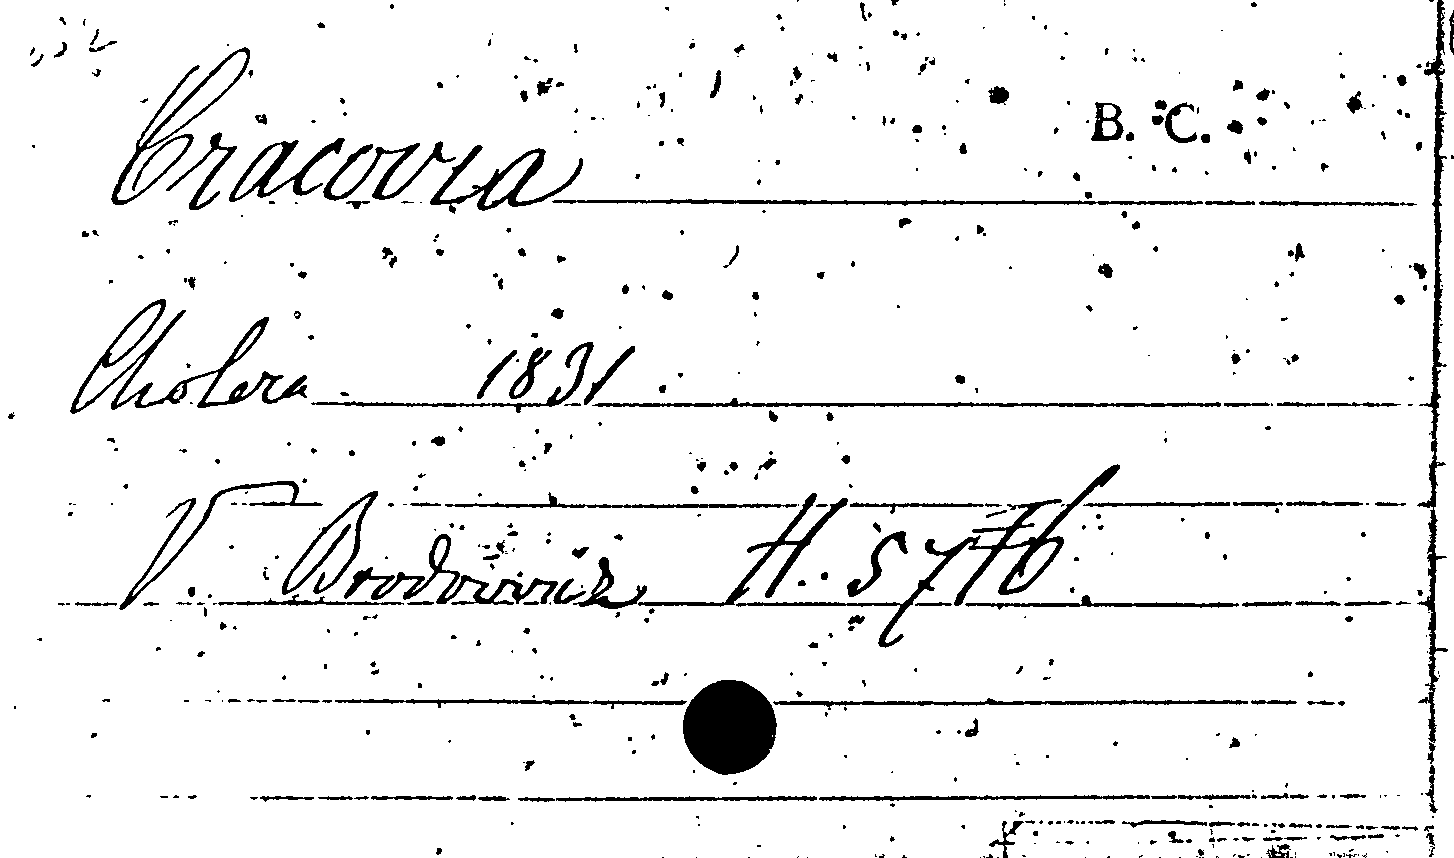 B. C.
Cracovia
Cholera 1831
V. Brodowicz H. 5776